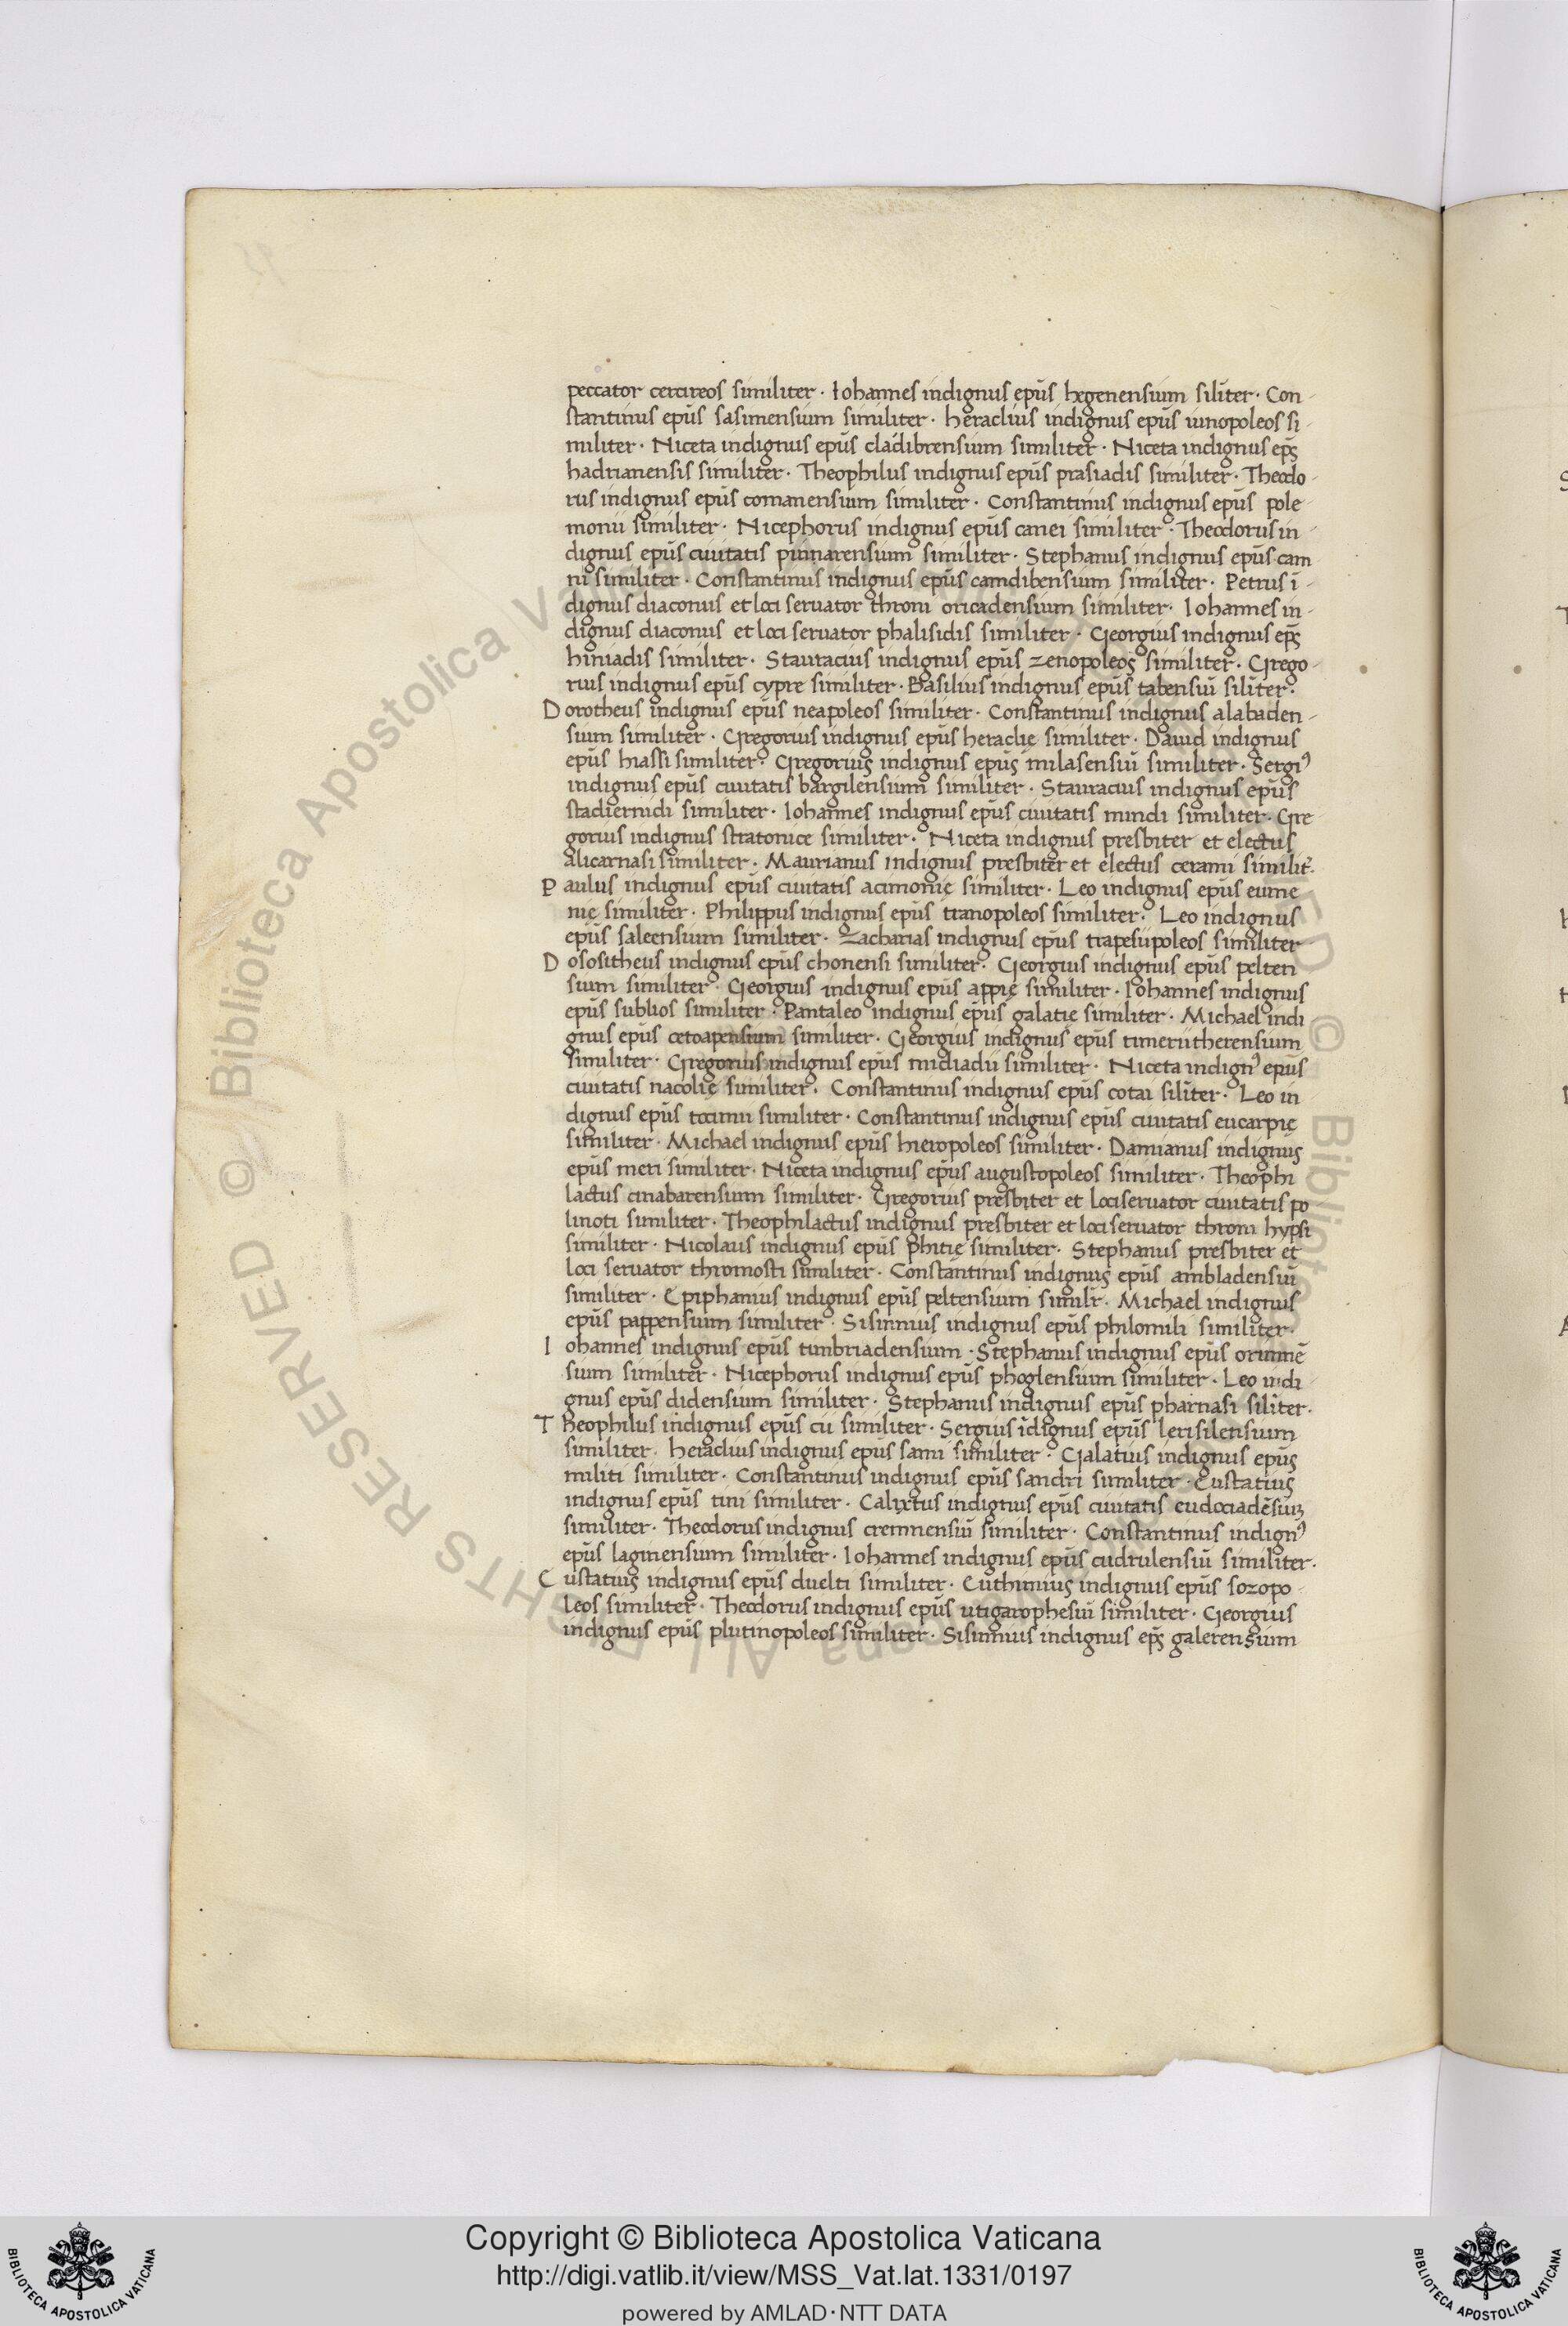 peccator cercireos similiter · Iohannes indignus ep̄s hęgenensium silīter · Con-
stantinus ep̄s sasimensium similiter · heraclius indignus ep̄s iunopoleos si-
militer · Niceta indignus ep̄s cladibrensium similiter · Niceta indignus ep̄s
hadrianensis similiter · Theophilus indignus ep̄s prasiadis similiter · Theodo-
rus indignus ep̄s comanensium similiter · Constantinus indignus ep̄s pole-
monii similiter · Nicephorus indignus ep̄s canei similiter · Theodorus in-
dignus ep̄s ciuitatis pinnarensium similiter · Stephanus indignus ep̄s cam
ni similiter · Constantinus indignus ep̄s camdibensium similiter · Petrus ī-
dignus diaconus et loci seruator throni oricadensium similiter · Iohannes in-
dignus diaconus et loci seruator phalisidis similiter · Georgius indignus ep̄s
hiniadis similiter · Stauracius indignus ep̄s zenopoleos similiter · Grego-
rius indignus ep̄s cypre similiter · Basilius indignus ep̄s tabensiū silīter ·
Dorotheus indignus ep̄s neapoleos similiter · Constantinus indignus alabaden-
sium similiter · Gregorius indignus ep̄s heraclię similiter · Dauid indignus
ep̄s hiassi similiter · Gregorius indignus ep̄s milasensiū similiter · Sergiꝰ
indignus ep̄s ciuitatis bargilensium similiter · Stauracius indignus ep̄s
stadiernidi similiter · Iohannes indignus ep̄s ciuitatis mindi similiter · Gre
gorius indignus stratonice similiter · Niceta indignus presbiter et electus
alicarnasi similiter · Maurianus indignus presbiter et electus cerami similit̄ ·
Paulus indignus ep̄s ciuitatis acimonię similiter · Leo indignus ep̄s eume
nię similiter · Philippus indignus ep̄s tranopoleos similiter · Leo indignus
ep̄s saleensium similiter · Zacharias indignus ep̄s trapesiipoleos similiter
Dosositheus indignus ep̄s chonensi similiter · Georgius indignus ep̄s pelten
sium similiter · Georgius indignus ep̄s appię similiter · Iohannes indignus
ep̄s sublios similiter · Pantaleo indignus ep̄s galatię similiter · Michael indi
gnus ep̄s cetoapensium similiter · Georgius indignus ep̄s timeriitherensium
similiter · Gregorius indignus ep̄s midiadii similiter · Niceta indignꝰ ep̄s
ciuitatis nacolię similiter · Constantinus indignus ep̄s cotai silīter · Leo in
dignus ep̄s tocimii similiter · Constantinus indignus ep̄s ciuitatis eucarpię
similiter · Michael indignus ep̄s hieropoleos similiter · Damianus indignus
ep̄s meri similiter · Niceta indignus ep̄s augustopoleos similiter · Theophi
lactus cinabarensium similiter · Gregorius presbiter et lociseruator ciuitatis po
linoti similiter · Theophilactus indignus presbiter et loci seruator throni hypsi
similiter · Nicolaus indignus ep̄s phitię similiter · Stephanus presbiter et
loci seruator thromosti similiter · Constantinus indignus ep̄s ambladensiū
similiter · Epiphanius indignus ep̄s peltensium simil̄r · Michael indignus
ep̄s pappensium similiter · Sisinnius indignus ep̄s philomili similiter ·
Iohannes indignus ep̄s timbriadensium · Stephanus indignus ep̄s orimnē
sium similiter · Nicephorus indignus ep̄s phoglensium similiter · Leo indi
gnus ep̄s didensium similiter · Stephanus indignus ep̄s pharnasi silīter ·
Theophilus indignus ep̄s cii similiter · Sergius īdignus ep̄s lerisilensium
similiter · heraclius indignus ep̄s sami similiter · Galatius indignus ep̄s
militi similiter · Constantinus indignus ep̄s sandri similiter · Eustatius
indignus ep̄s tini similiter · Calixtus indignus ep̄s ciuitatis eudociadēsiuꝫ
similiter · Theodorus indignus cremnensiū similiter · Constantinus indignꝰ
ep̄s laginensium similiter · Iohannes indignus ep̄s cudrulensiū similiter ·
Eustatius indignus ep̄s duelti similiter · Euthimius indignus ep̄s sozopo-
leos similiter · Theodorus indignus ep̄s utigarophesiū similiter · Georgius
indignus ep̄s plutinopoleos similiter · Sisinnius indignus ep̄s galerensium
Copyright © Biblioteca Apostolica Vaticana
http://digi.vatlib.it/view/MSS_Vat.lat.1331/0197
powered by AMLAD·NTT DATA